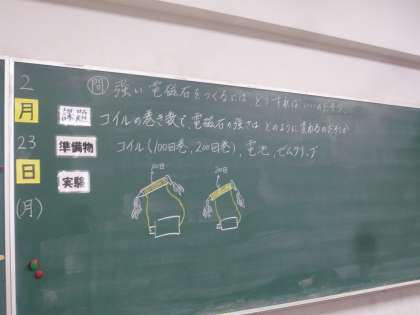 2月23日(月)
問 強い電磁石をつくるには、どうすればいいのだろう。
課題 コイルの巻き数で、電磁石の強さは どのように変わるのだろうか
準備物 コイル(100回巻,200回巻),電池,ゼムクリップ
実験
100回
200回